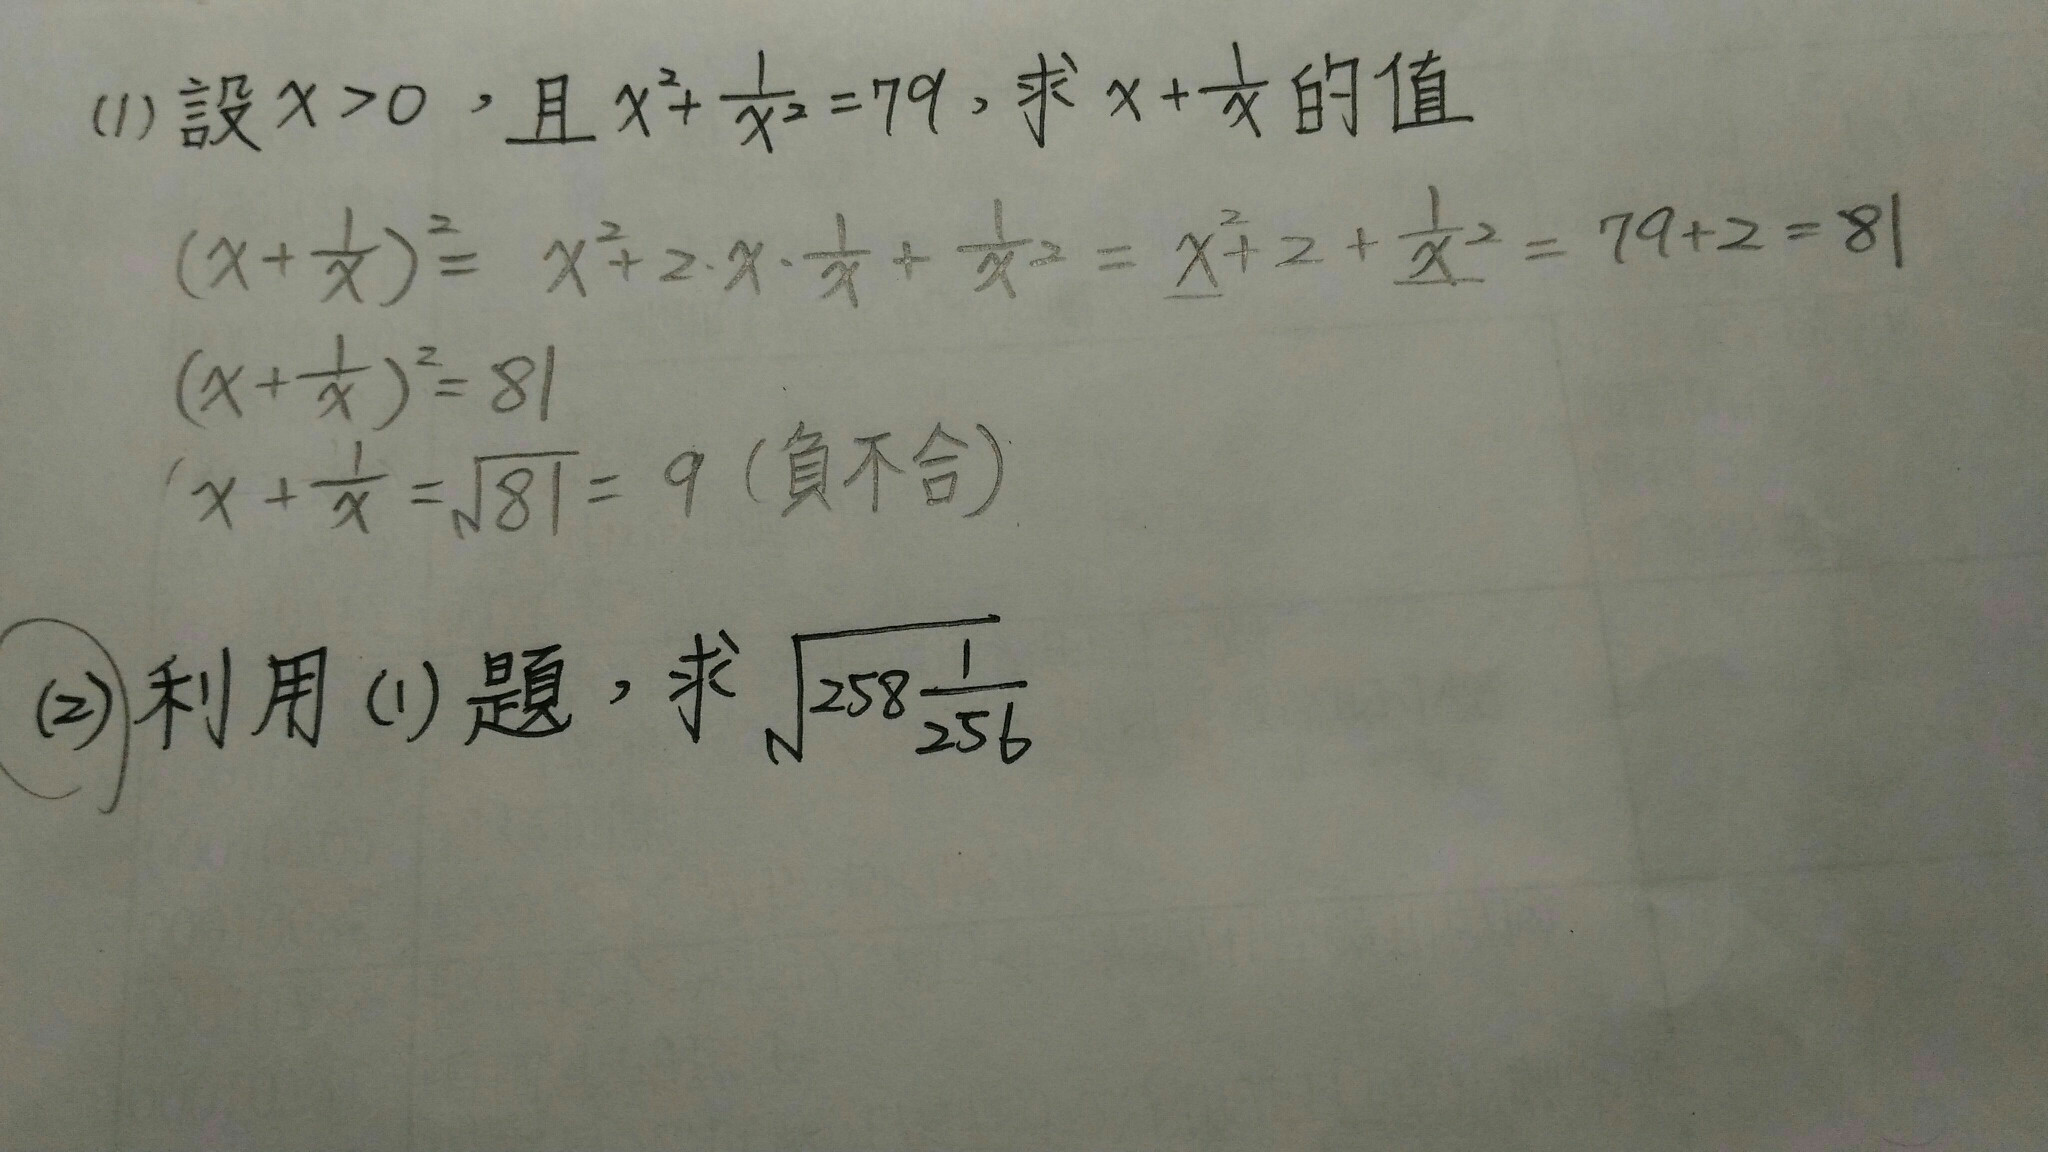 (1) 設 x > 0 , 且 x² + 1/x² = 79 , 求 x + 1/x 的值
(x + 1/x)² = x² + 2 · x · 1/x + 1/x² = x² + 2 + 1/x² = 79 + 2 = 81
(x + 1/x)² = 81
x + 1/x = √81 = 9 (負不合)
(2) 利用 (1) 題 , 求 √(258 1/256)